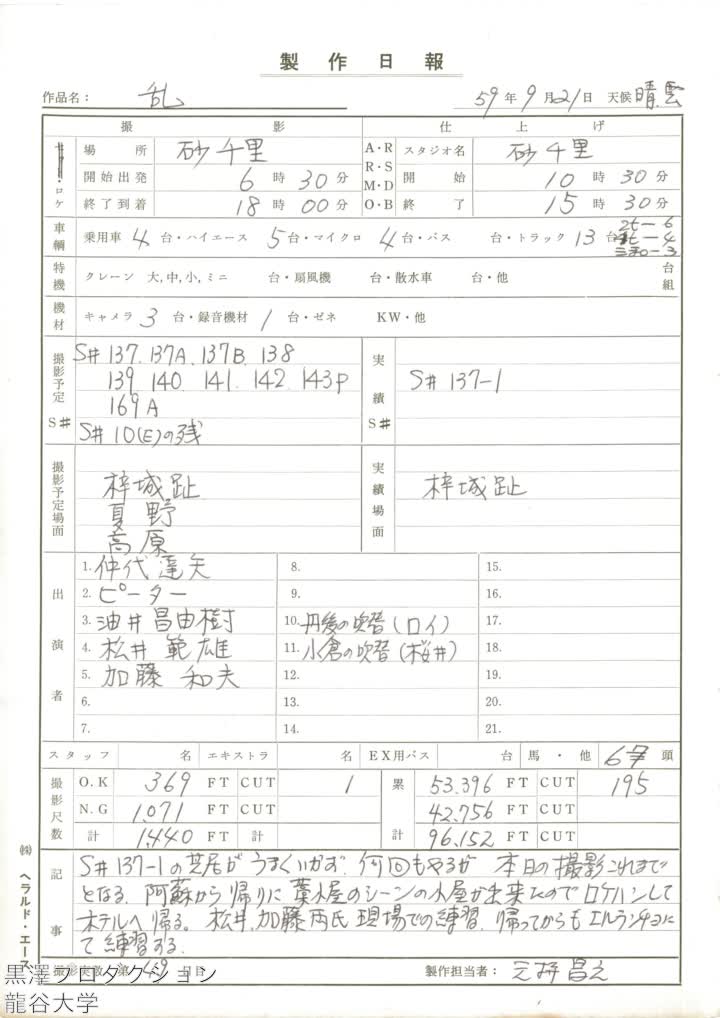 製作日報
作品名： 乱 59年9月21日 天候 晴曇
撮影 仕上げ
・ロケ 場所 砂千里 A・R R・S M・D O・B スタジオ名 砂千里
開始出発 6時30分 開始 10時30分
終了到着 18時00分 終了 15時30分
車輌 乗用車 4台・ハイエース 5台・マイクロ 4台・バス 台・トラック 13台 2t-6
特機 クレーン 大,中,小,ミニ 台・扇風機 台・散水車 台・他 台組
機材 キャメラ 3台・録音機材 1台・ゼネ KW・他
撮影予定 S# S#137. 137A. 137B. 138 実績 S# S#137-1
139 140. 141. 142. 143P
169A
S#10(E)の残
撮影予定場面 梓城趾 実績場面 梓城趾
夏野
高原
出演者 1.仲代達矢 8. 15.
2.ピーター 9. 16.
3.油井昌由樹 10.丹後の吹替(ロイ) 17.
4.松井範雄 11.小倉の吹替(桜井) 18.
5.加藤和夫 12. 19.
6. 13. 20.
7. 14. 21.
スタッフ 名 エキストラ 名 EX用バス 台 馬・他 頭
撮影尺数 O.K 369 FT CUT 1 累計 53.396 FT CUT 195
N.G 1,071 FT CUT 42.756 FT CUT
計 1,440 FT 計 96,152 FT CUT
記事 S#137-1の芝居がうまくいかず.何回もやるが 本日の撮影これまで
となる. 阿蘇から帰りに藁小屋のシーンの小屋が出来たのでロケハンして
ホテルへ帰る。 松井,加藤両氏現場での練習. 帰ってからもエルランチョに
て練習する.
撮影実数 第 日目 製作担当者：
㈱ヘラルド・エース
黒澤プロダクション
龍谷大学